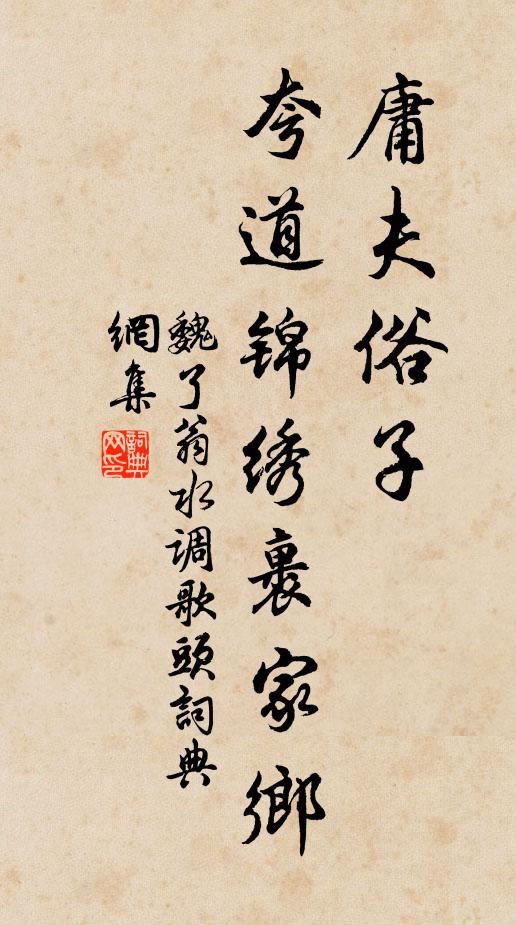 庸夫俗子
夸道锦绣裹家鄉
魏了翁水调歌頭詞典
網集
詞典
网印